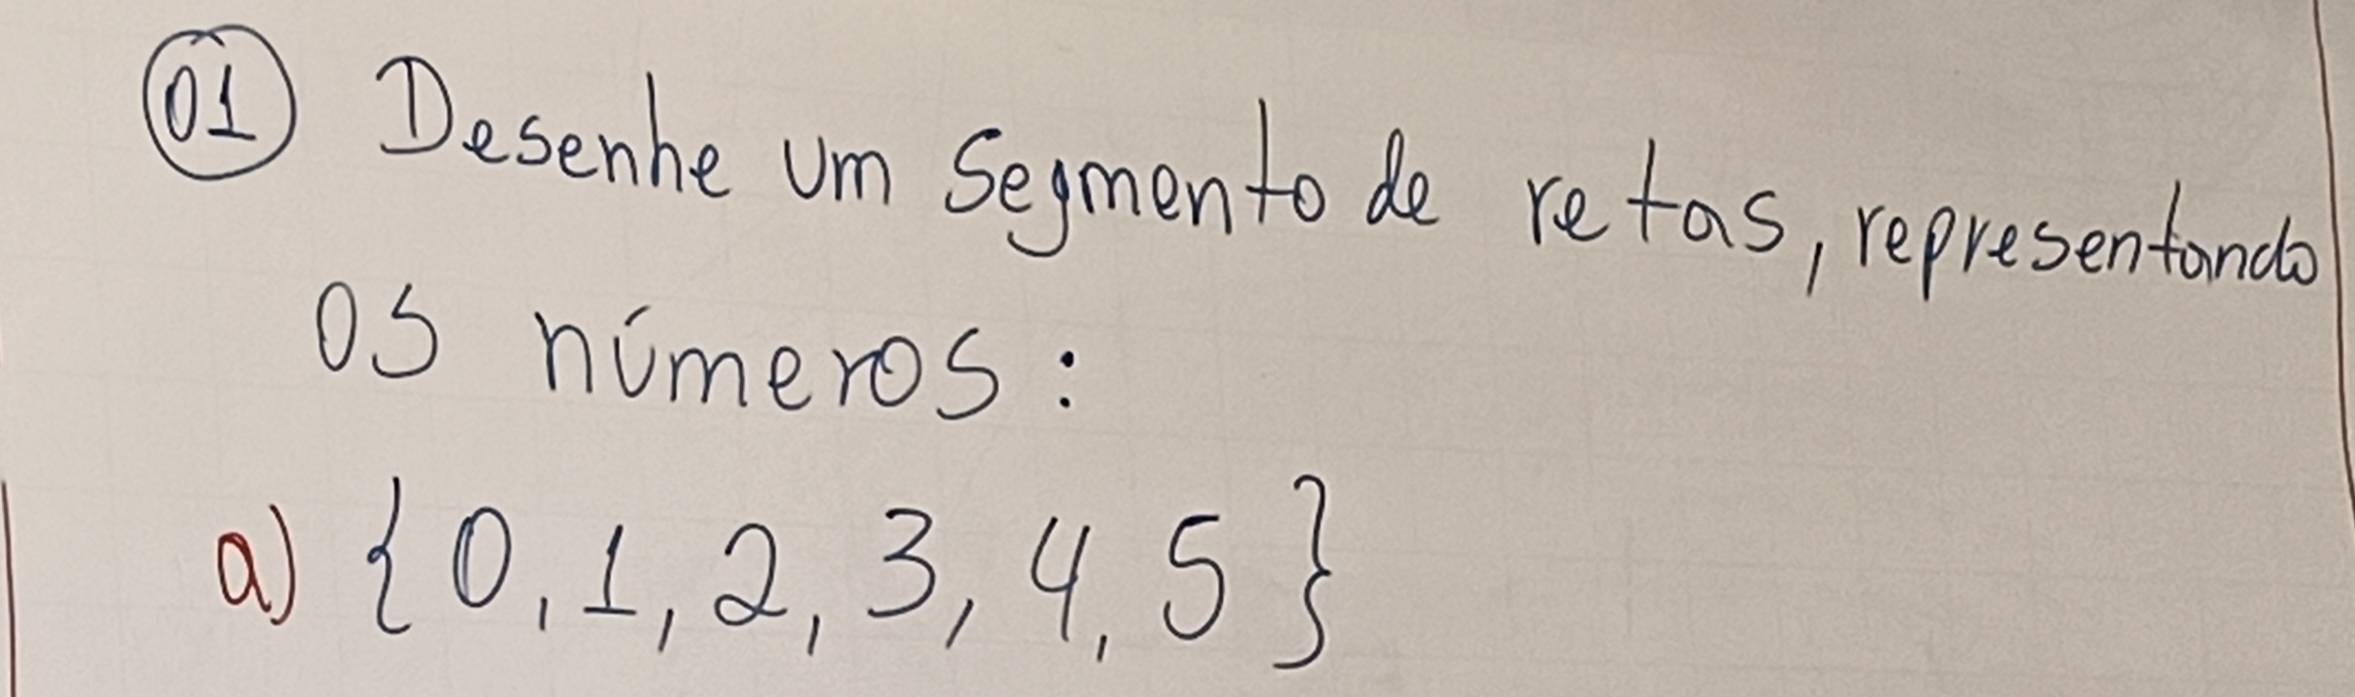 01 Desenhe um segmento de retas, representando
os números:
a) { 0, 1, 2, 3, 4, 5 }